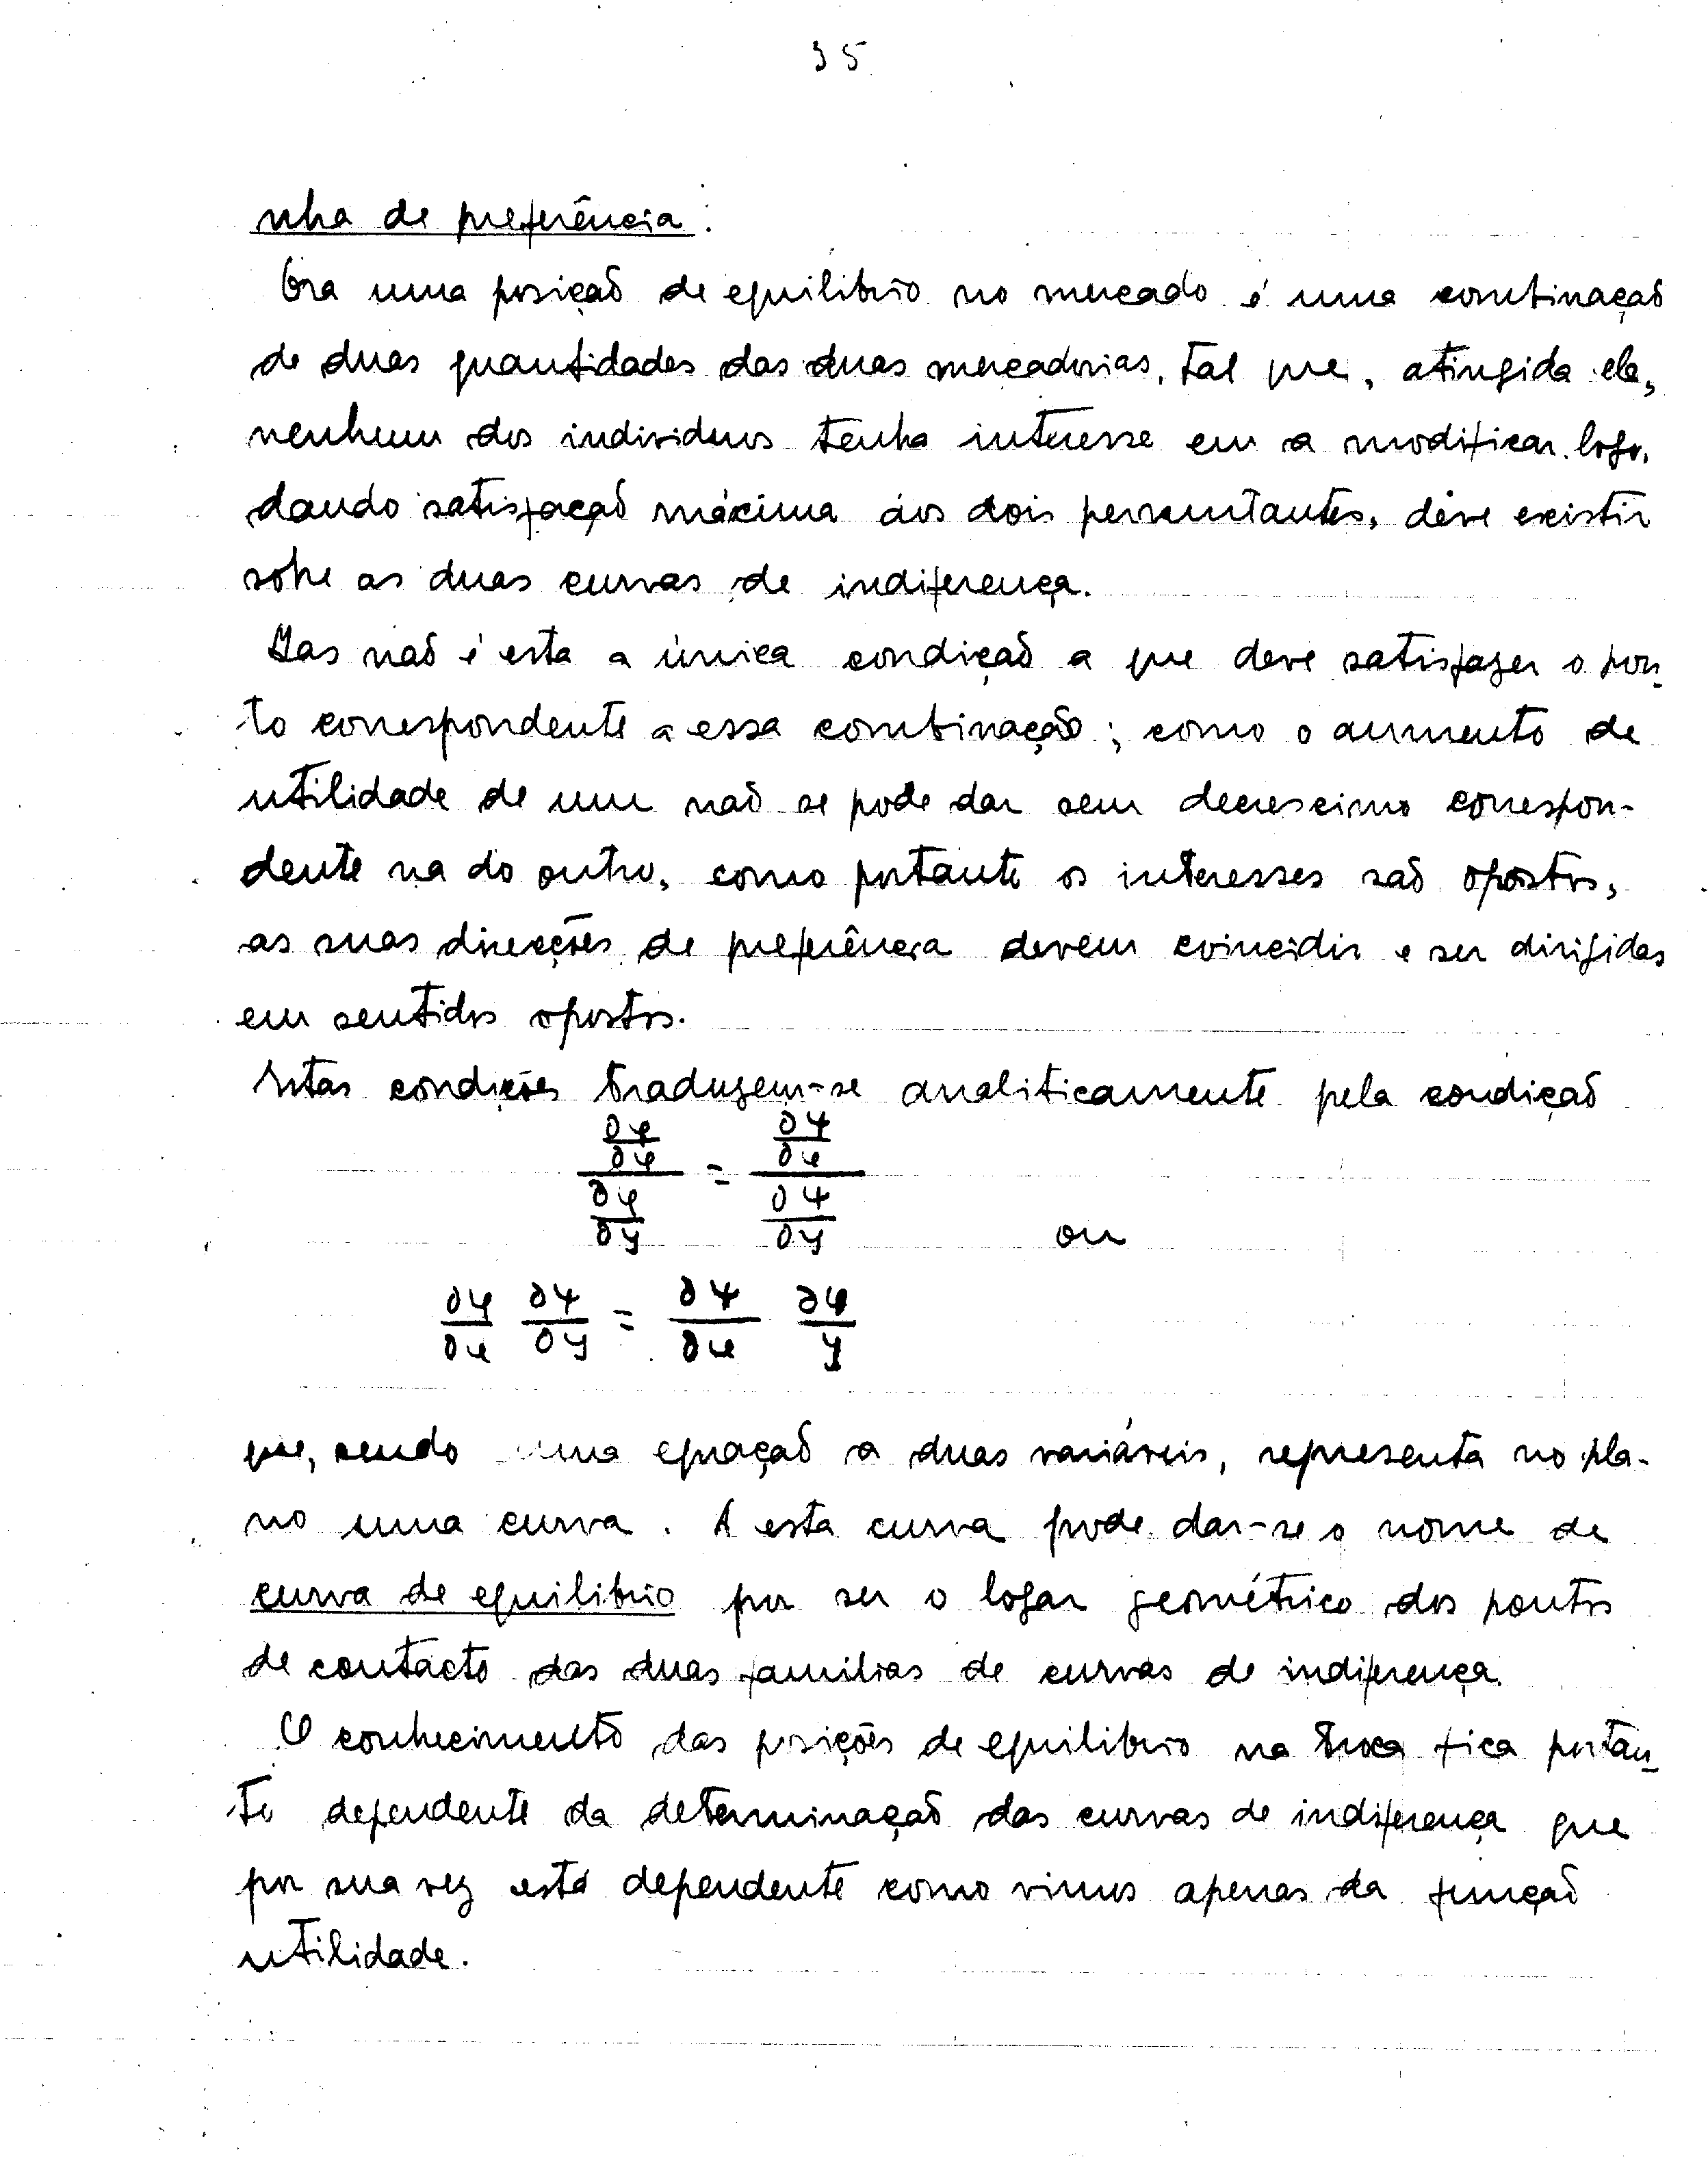 35
nha de preferência.
Ora uma posição de equilibrio no mercado é uma combinação
de duas quantidades das duas mercadorias, tal que, atingida ela,
nenhum dos individuos tenha interesse em a modificar. Logo,
dando satisfação máxima aos dois permutantes, deve existir
sobre as duas curvas de indiferença.
Mas não é esta a única condição a que deve satisfazer o pon-
to correspondente a essa combinação; como o aumento de
utilidade de um não se pode dar sem decrescimo correspon-
dente na do outro, como portanto os interesses são opostos,
as suas direcções de preferência devem coincidir e ser dirigidas
em sentidos opostos.
Estas condições traduzem-se analiticamente pela condição
∂φ/∂x / ∂φ/∂y = ∂ψ/∂x / ∂ψ/∂y ou
∂φ/∂x ∂ψ/∂y = ∂ψ/∂x ∂φ/y
que, sendo uma equação a duas variáveis, representa no pla-
no uma curva. A esta curva pode dar-se o nome de
curva de equilibrio por ser o logar geométrico dos pontos
de contacto das duas familias de curvas de indiferença.
O conhecimento das posições de equilibrio na troca fica portan-
to dependente da determinação das curvas de indiferença que
por sua vez está dependente como vimos apenas da função
utilidade.